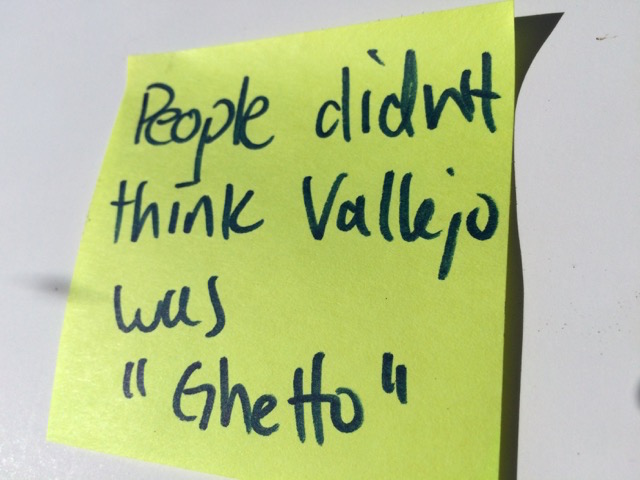 People didnt
think Vallejo
was
"Ghetto"